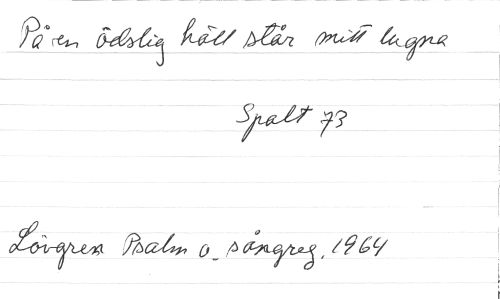 På en ödslig häll står mitt lugna
Spalt 73
Lövgren Psalm o. sångreg. 1964